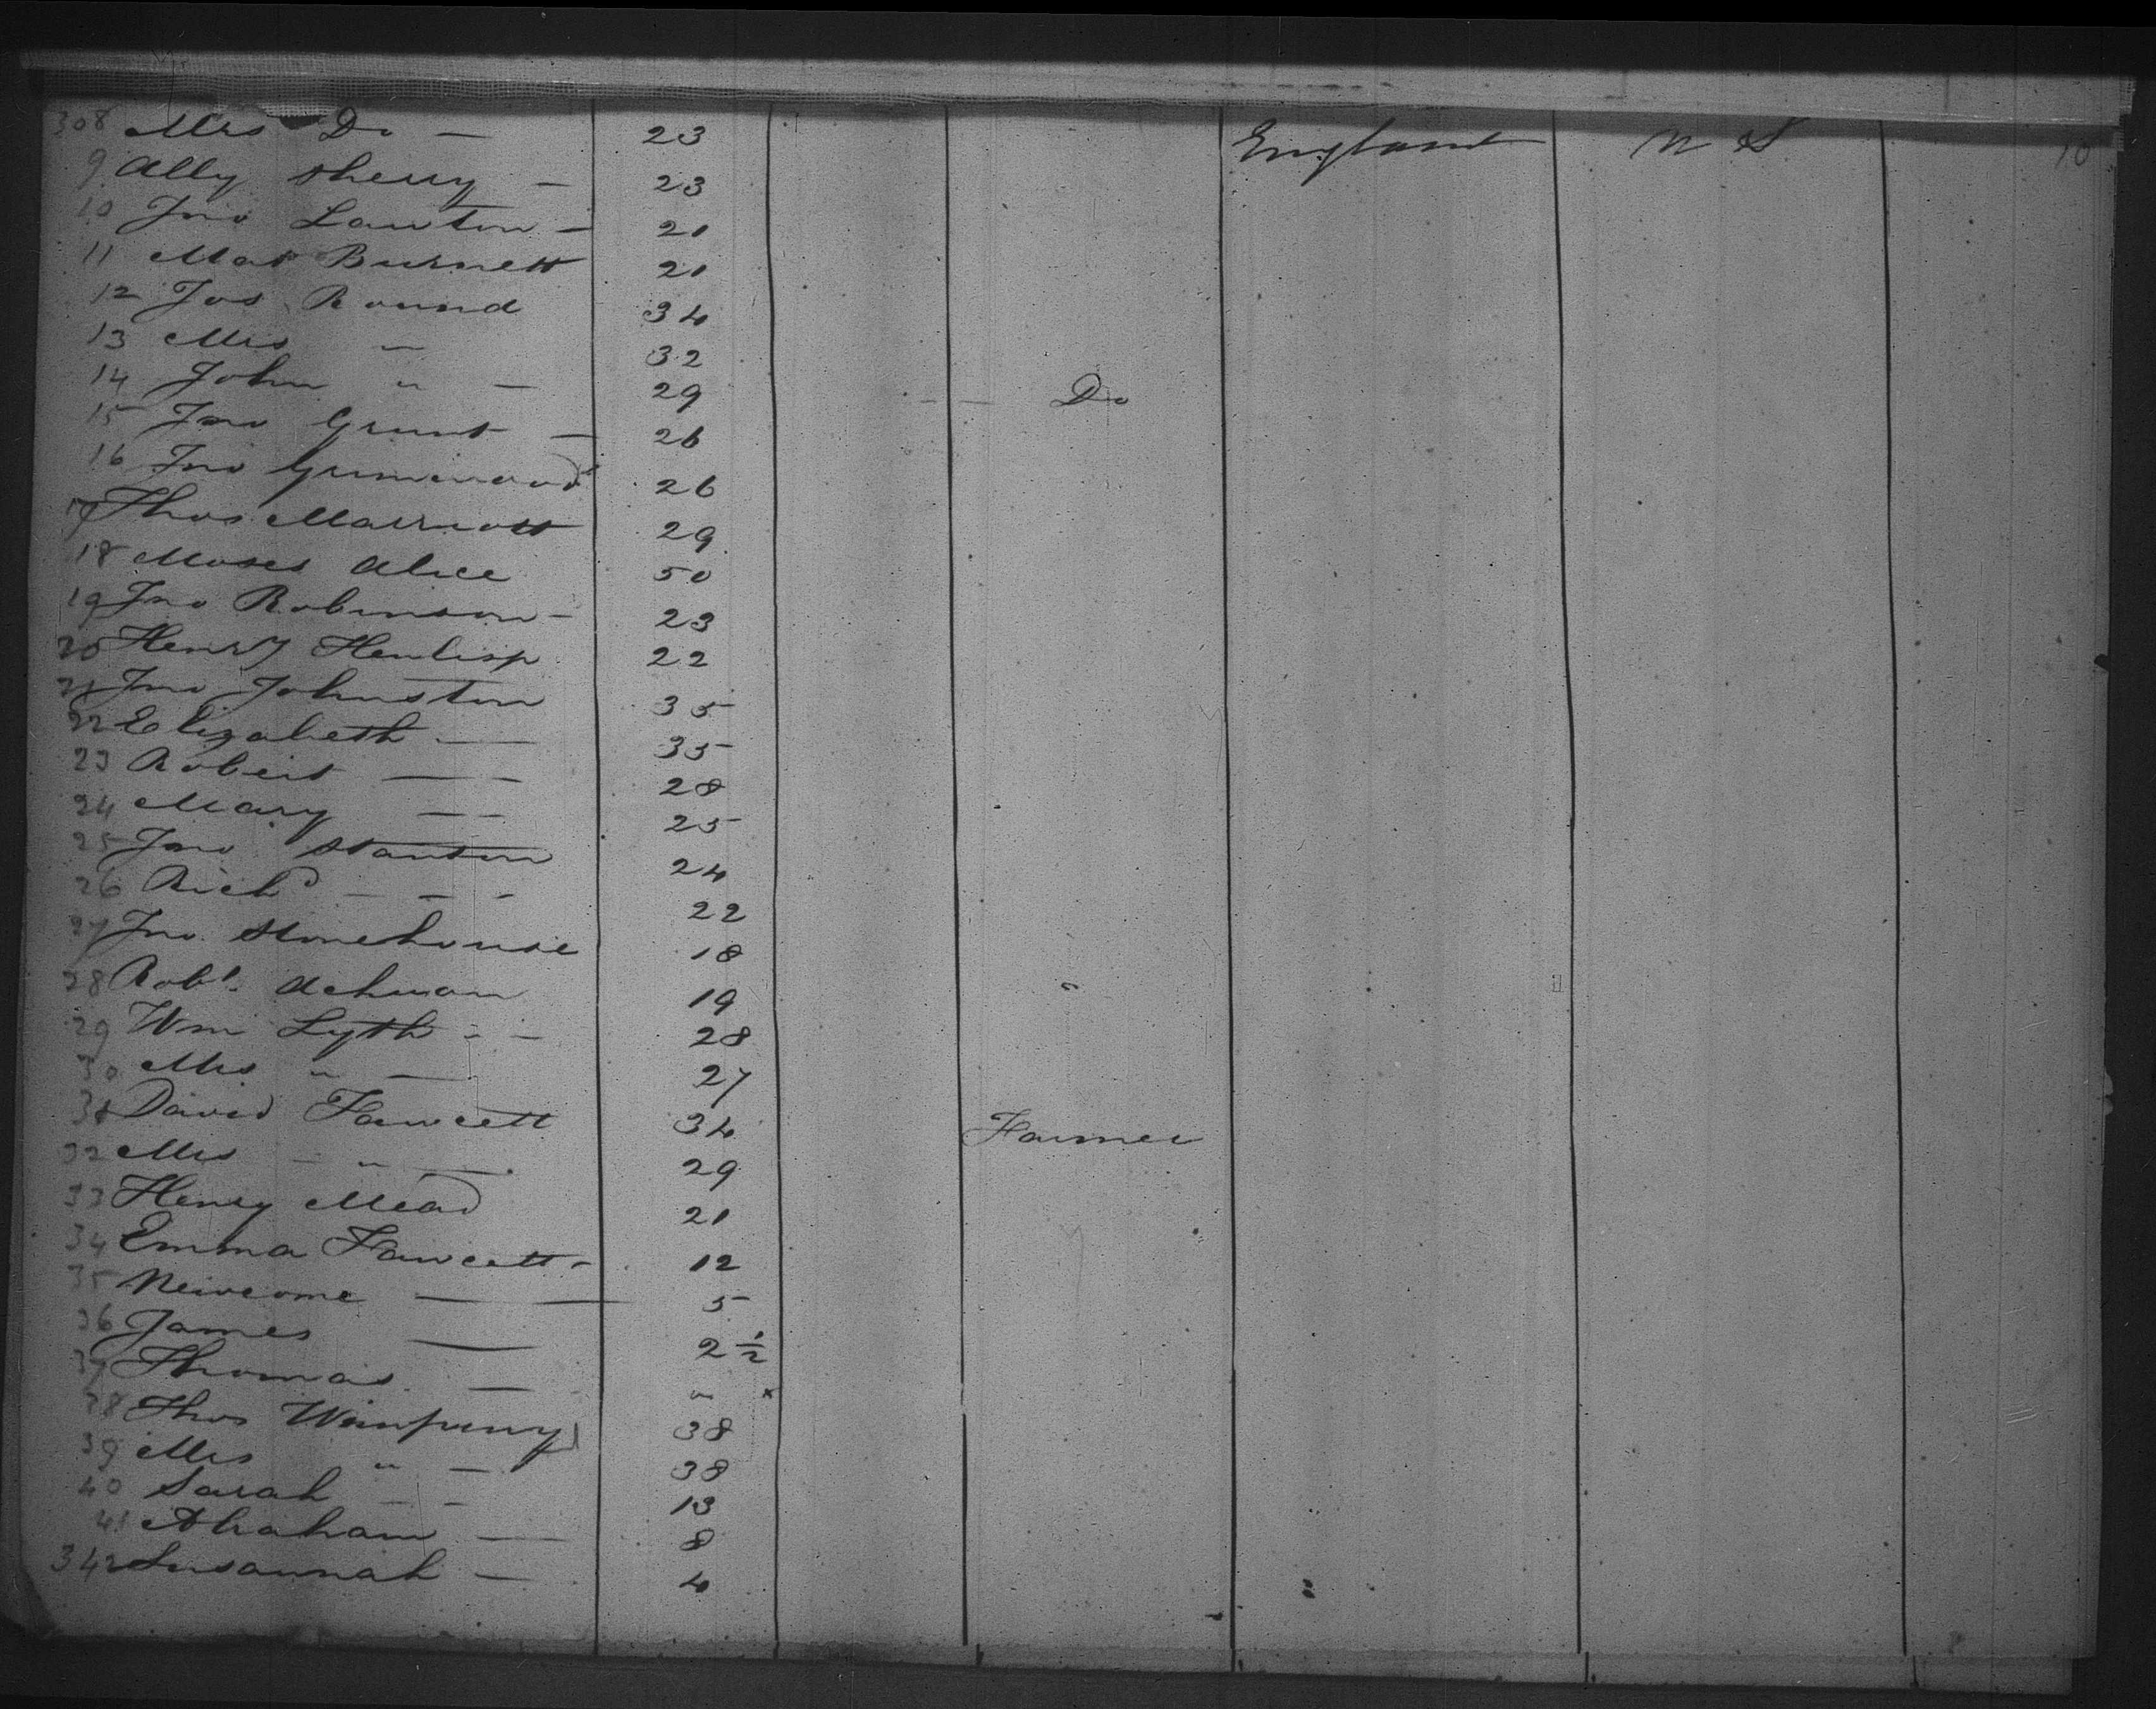 308 Mrs Do — 23 England U S 10
9 Ally Sherry — 23
10 Jno Lawton — 21
11 Mat Burnett 21
12 Jos Round 34
13 Mrs " 32
14 John " — 29 Do
15 Jno Grunt — 26
16 Jno Grimwood 26
17 Thos Marriott 29
18 Moses Alice 50
19 Jno Robinson — 23
20 Henry 22
21 Jno Johnston 35
22 Elizabeth — 35
23 Robert — — 28
24 Mary — — 25
25 Jno Stanton 24
26 Richd — — — 22
27 Jno Stonehouse 18
28 Robt. 19
29 Wm Lyth — — 28
30 Mrs " — 27
31 David Fawcett 34 Farmer
32 Mrs — " — 29
33 Henry Mead 21
34 Emma Fawcett — 12
35 Newcome — — 5
36 James — 2 1/2
37 Thomas — " x
38 Thos Wimpenny 38
39 Mrs " — 38
40 Sarah — — 13
41 Abraham — 8
342 Susannah — 4